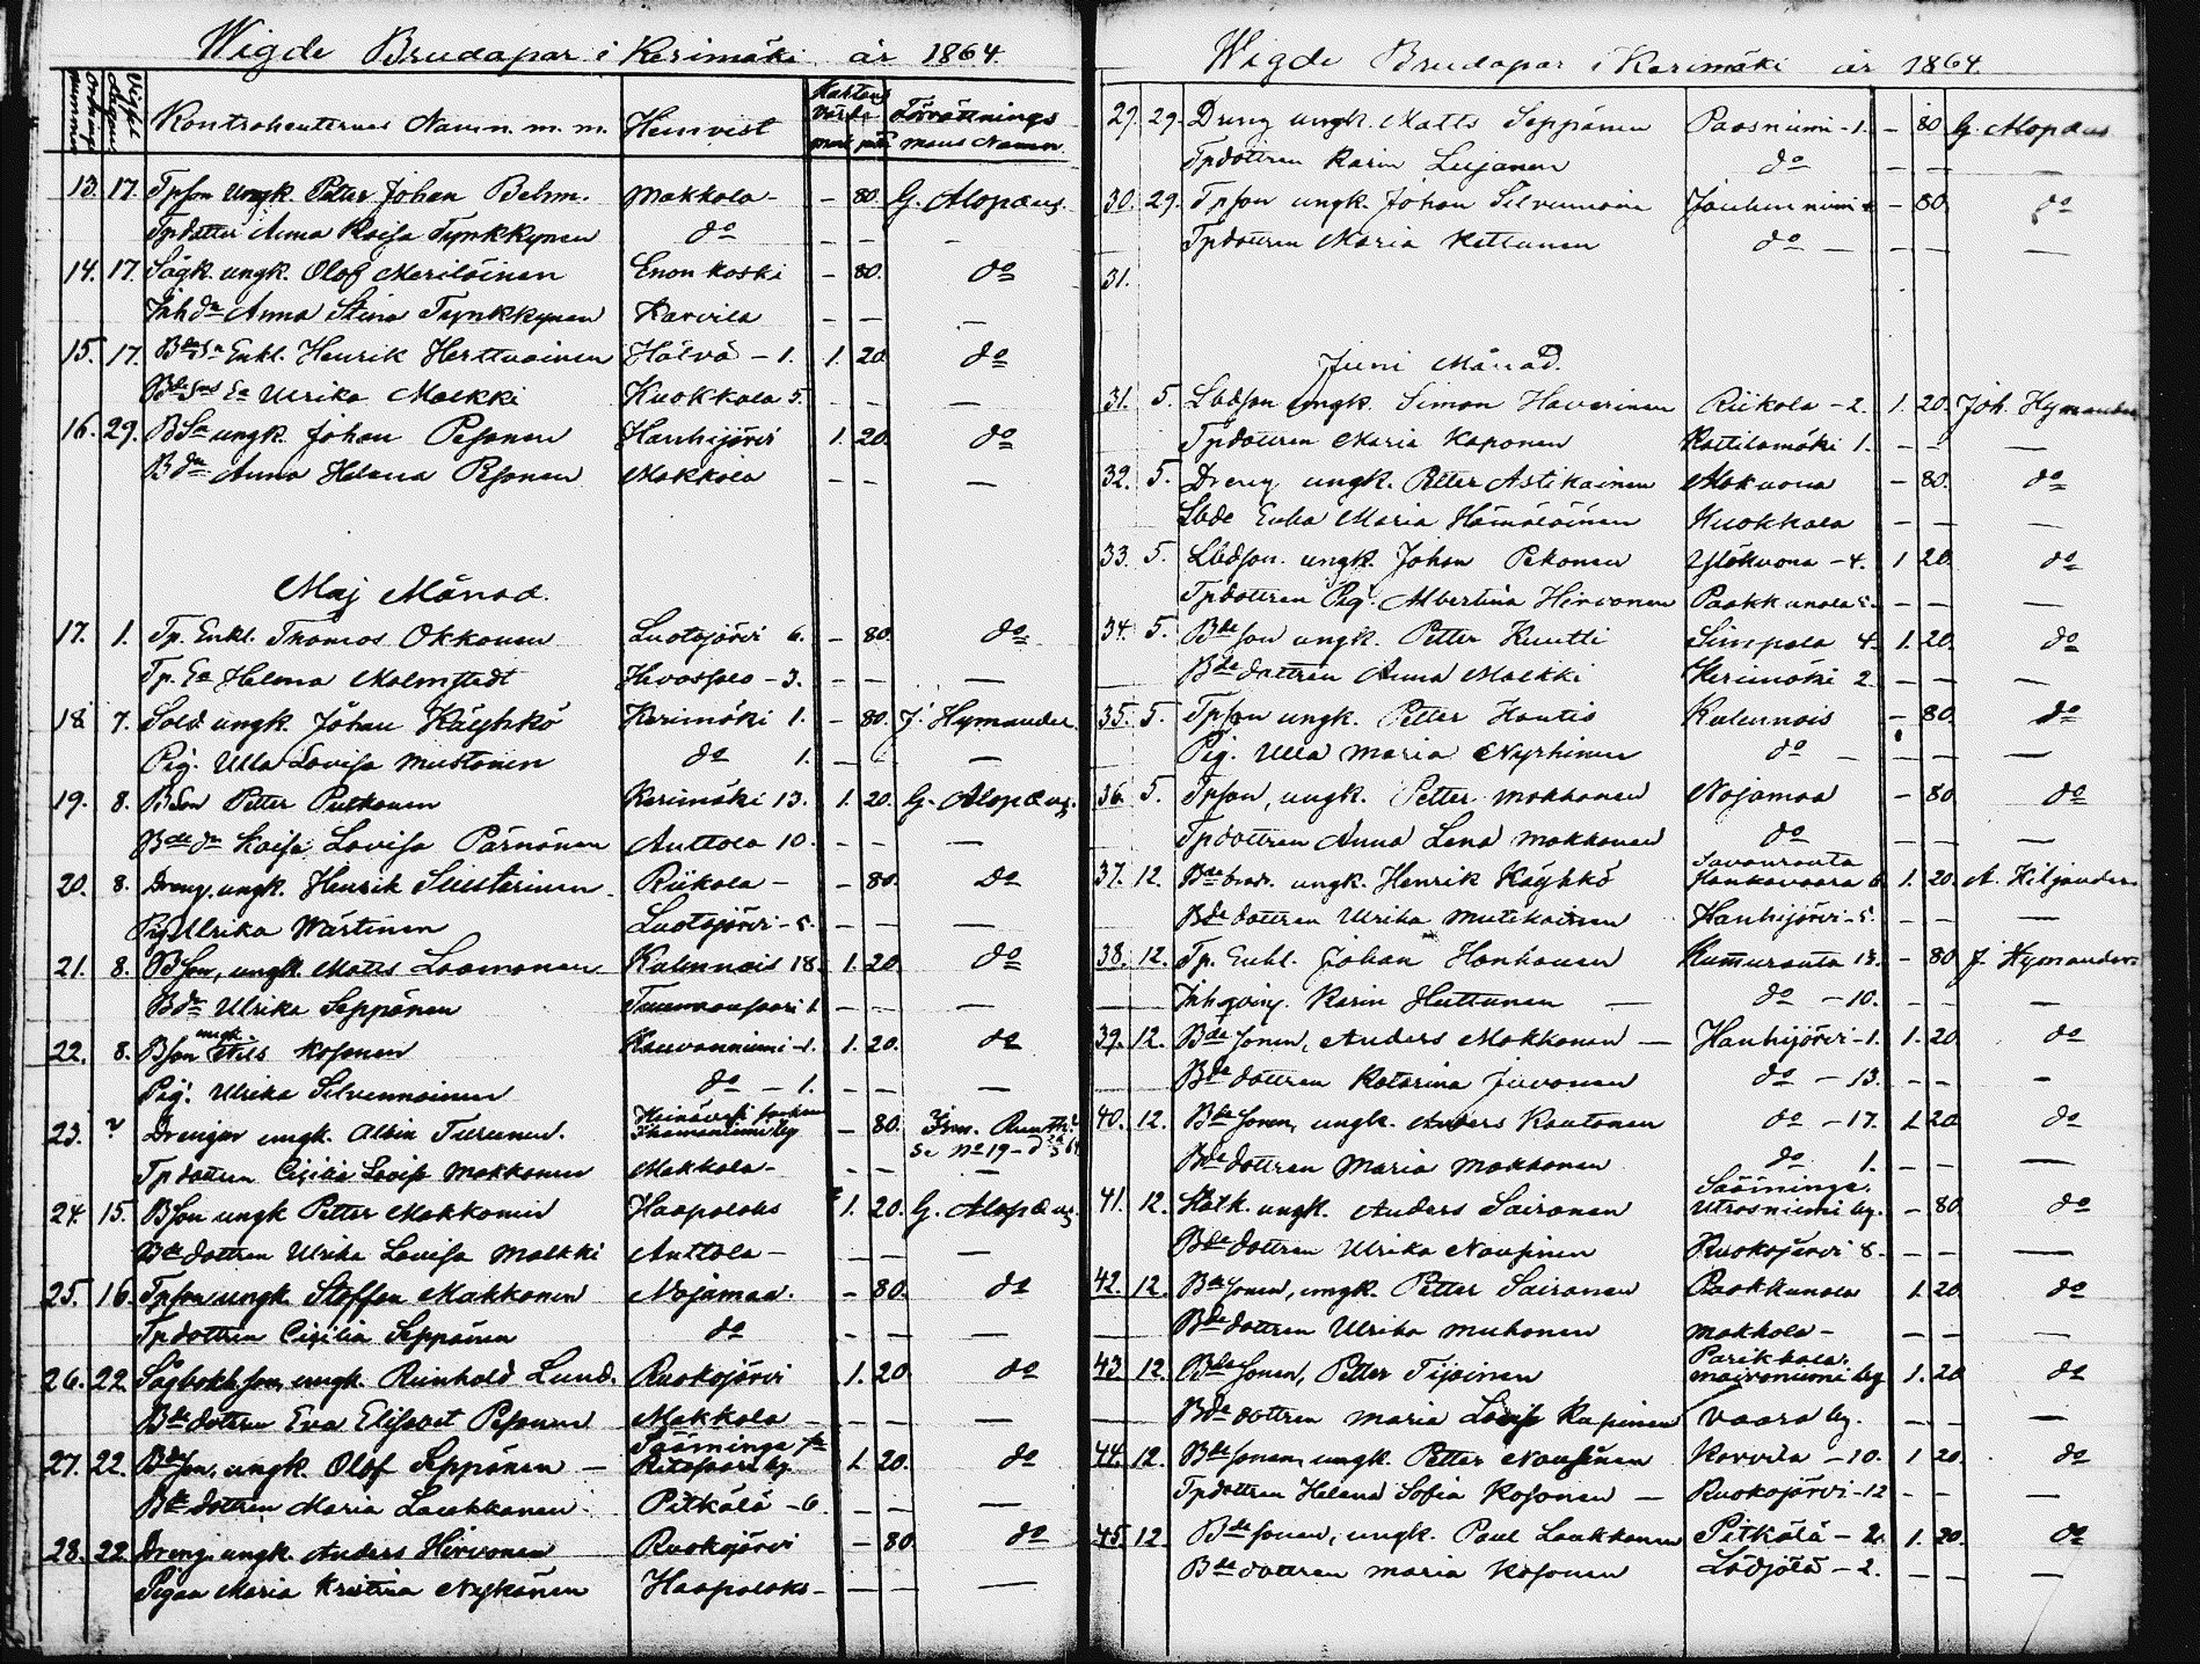 Wigde Brudapar i Kerimäki år 1864.
Vigsel dagen
Kontrahenternas Namn m. m. Hemvist Kartans Värde mark Förrättnings mans Namn
13. 17. Tpson Ungk. Petter Johan Behm. Makkola - - 80. G. Alopæus.
Tpdotter Anna Kaisa Tynkkynen do - - -
14. 17. Sågk. ungk. Olof Meriläinen Enonkoski - 80. do
Inh dn Anna Stina Tynkkynen Karvila - - -
15. 17. Enkl. Henrik Herttuainen Hälvä - 1. 1. 20. do
Ea Ulrika Malkki Kuokkala 5. - - -
16. 29. BSn ungk. Johan Pesonen Hanhijärvi 1. 20. do
B dn Anna Helena Pesonen Makkola - - -
Maj Månad.
17. 1. Tp. Enkl. Thomas Okkonen Luotojärvi 6. - 80. do
Tp. Ea Helena Malmstedt - 3. - - -
18 7. Sold ungk. Johan Käyhkö Kerimäki 1. - 80. J. Hymander.
Pig. Ulla Lovisa Mustonen do 1. - - -
19. 8. BSon Petter Pulkonen Kerimäki 13. 1. 20. G. Alopæus.
Bde dn Kaisa Lovisa Pärnänen Anttola 10. - - -
20. 8. Dreng. ungk. Henrik Riikola - - 80. Do
Pig Ulrika Wärtinen Luotojärvi - 5. - - -
21. 8. BSon, ungk. Matts Laamanen Kulennois 18. 1. 20. do
B dn Ulrika Seppänen - - -
22. 8. Bson ungk. Nils Kosonen Kauvonniemi - 1. 1. 20. do
Pig. Ulrika Silvennoinen do - 1. - - -
23. ? Drengen ungk. Albin Turunen. Heinävesi by - 80. Se No 19 -
Tpdottren Cicilia Lovisa Makkonen Makkola - - - -
24. 15. BSon ungk Petter Makkonen Haapalaks 1. 20. G. Alopæus.
Bde dottren Ulrika Lovisa Malkki Anttola - - - -
25. 16. Tpson ungk. Staffan Makkonen Nojamaa. - 80. do
Tpdottren Cicilia Seppänen do - - -
26. 22 ungk. Reinhold Lund. Ruokojärvi 1. 20. do
Bde dottren Eva Elisabet Pesonen Makkola - - - -
27. 22. Bdeson, ungk. Olof Seppänen - Sääminge by. 1. 20. do
Bde dottren Maria Laukkanen Pitkälä - 6 - - -
28. 22. Dreng. ungk. Anders Hirvonen Ruokojärvi - 80. do
Pigan Maria Kristina Nykänen Haapalaks - - - -
Wigde Brudapar i Kerimäki år 1864.
29. 29. Dreng ungk. Matts Seppänen Paasniemi - 1. - 80 G. Alopæus
Tpdottren Karin Leijanen do - - -
30. 29. Tpson ungk. Johan Silvennoine Jouhenniemi - 80. do
Tpdottren Maria Kettunen do - - - -
31.
Juni Månad.
31. 5. Lbdson ungk. Simon Haverinen Riikola - 2. 1. 20. Joh. Hymander
Tpdottren Maria Kaponen Kattilamäki 1. - - -
32. 5. Dreng ungk. Petter Astikainen - 80. do
Lbde Enka Maria Hämäläinen Kuokkala - - -
33. 5. Lbdson. ungk. Johan Pekonen Yläkuona - 4. 1 20. do
Tpdottren Pig. Albertina Hirvonen Paakkunala - - -
34. 5. Bde son ungk. Petter Kuutti Simpala 4. 1. 20. do
Bde dottren Anna Malkki Kerimäki 2. - - -
35. 5. Tpson ungk. Petter Hautio Kulennois - 80. do
Pig. Ulla Maria Nyrhinen do - - - -
36. 5. Tpson, ungk. Petter Makkonen Nojamaa - 80 do
Tpdottren Anna Lena Makkonen do - - -
37. 12. Bde brodr. ungk. Henrik Käyhkö Savonranta Hankavaara 6 1. 20. A. Kiljander.
Bde dottren Ulrika Mutikainen Hanhijärvi - 5. - - -
38. 12. Tp. Enkl. Johan Honkanen Kummuranta 13. - 80. J. Hymander
Inh. Karin Huttunen - do - 10. - - -
39. 12. Bde sonen, Anders Makkonen - Hanhijärvi - 1. 1. 20 do
Bde dottren Katarina Juvonen do - 13. - - -
40. 12. Bde sonen, ungk. Anders Kautonen do - 17. 1. 20 do
Bde dottren Maria Makkonen do 1. - - -
41. 12. ungk. Anders Sairanen Sääminge. Utrasniemi by. - 80. do
Bde dottren Ulrika Nousinen Ruokojärvi 8. - - -
42. 12. Bde sonen, ungk. Petter Sairanen Paakkunala 1. 20. do
Bde dottren Ulrika Muhonen Makkola - - - -
43. 12. Bde sonen, Petter Tijainen Parikkala. by 1. 20 do
Bde dottren Maria Lovisa Kupinen Vaara by. - - -
44. 12. Bde sonen, ungk. Petter Nousinen Karvila - 10. 1 20. do
Tpdottren Helena Sofia Kosonen - Ruokojärvi - 12 - - -
45. 12. Bde sonen, ungk. Paul Laukkanen Pitkälä - 2. 1. 20. do
Bde dottren Maria Kosonen Lädjälä - 2. - - -